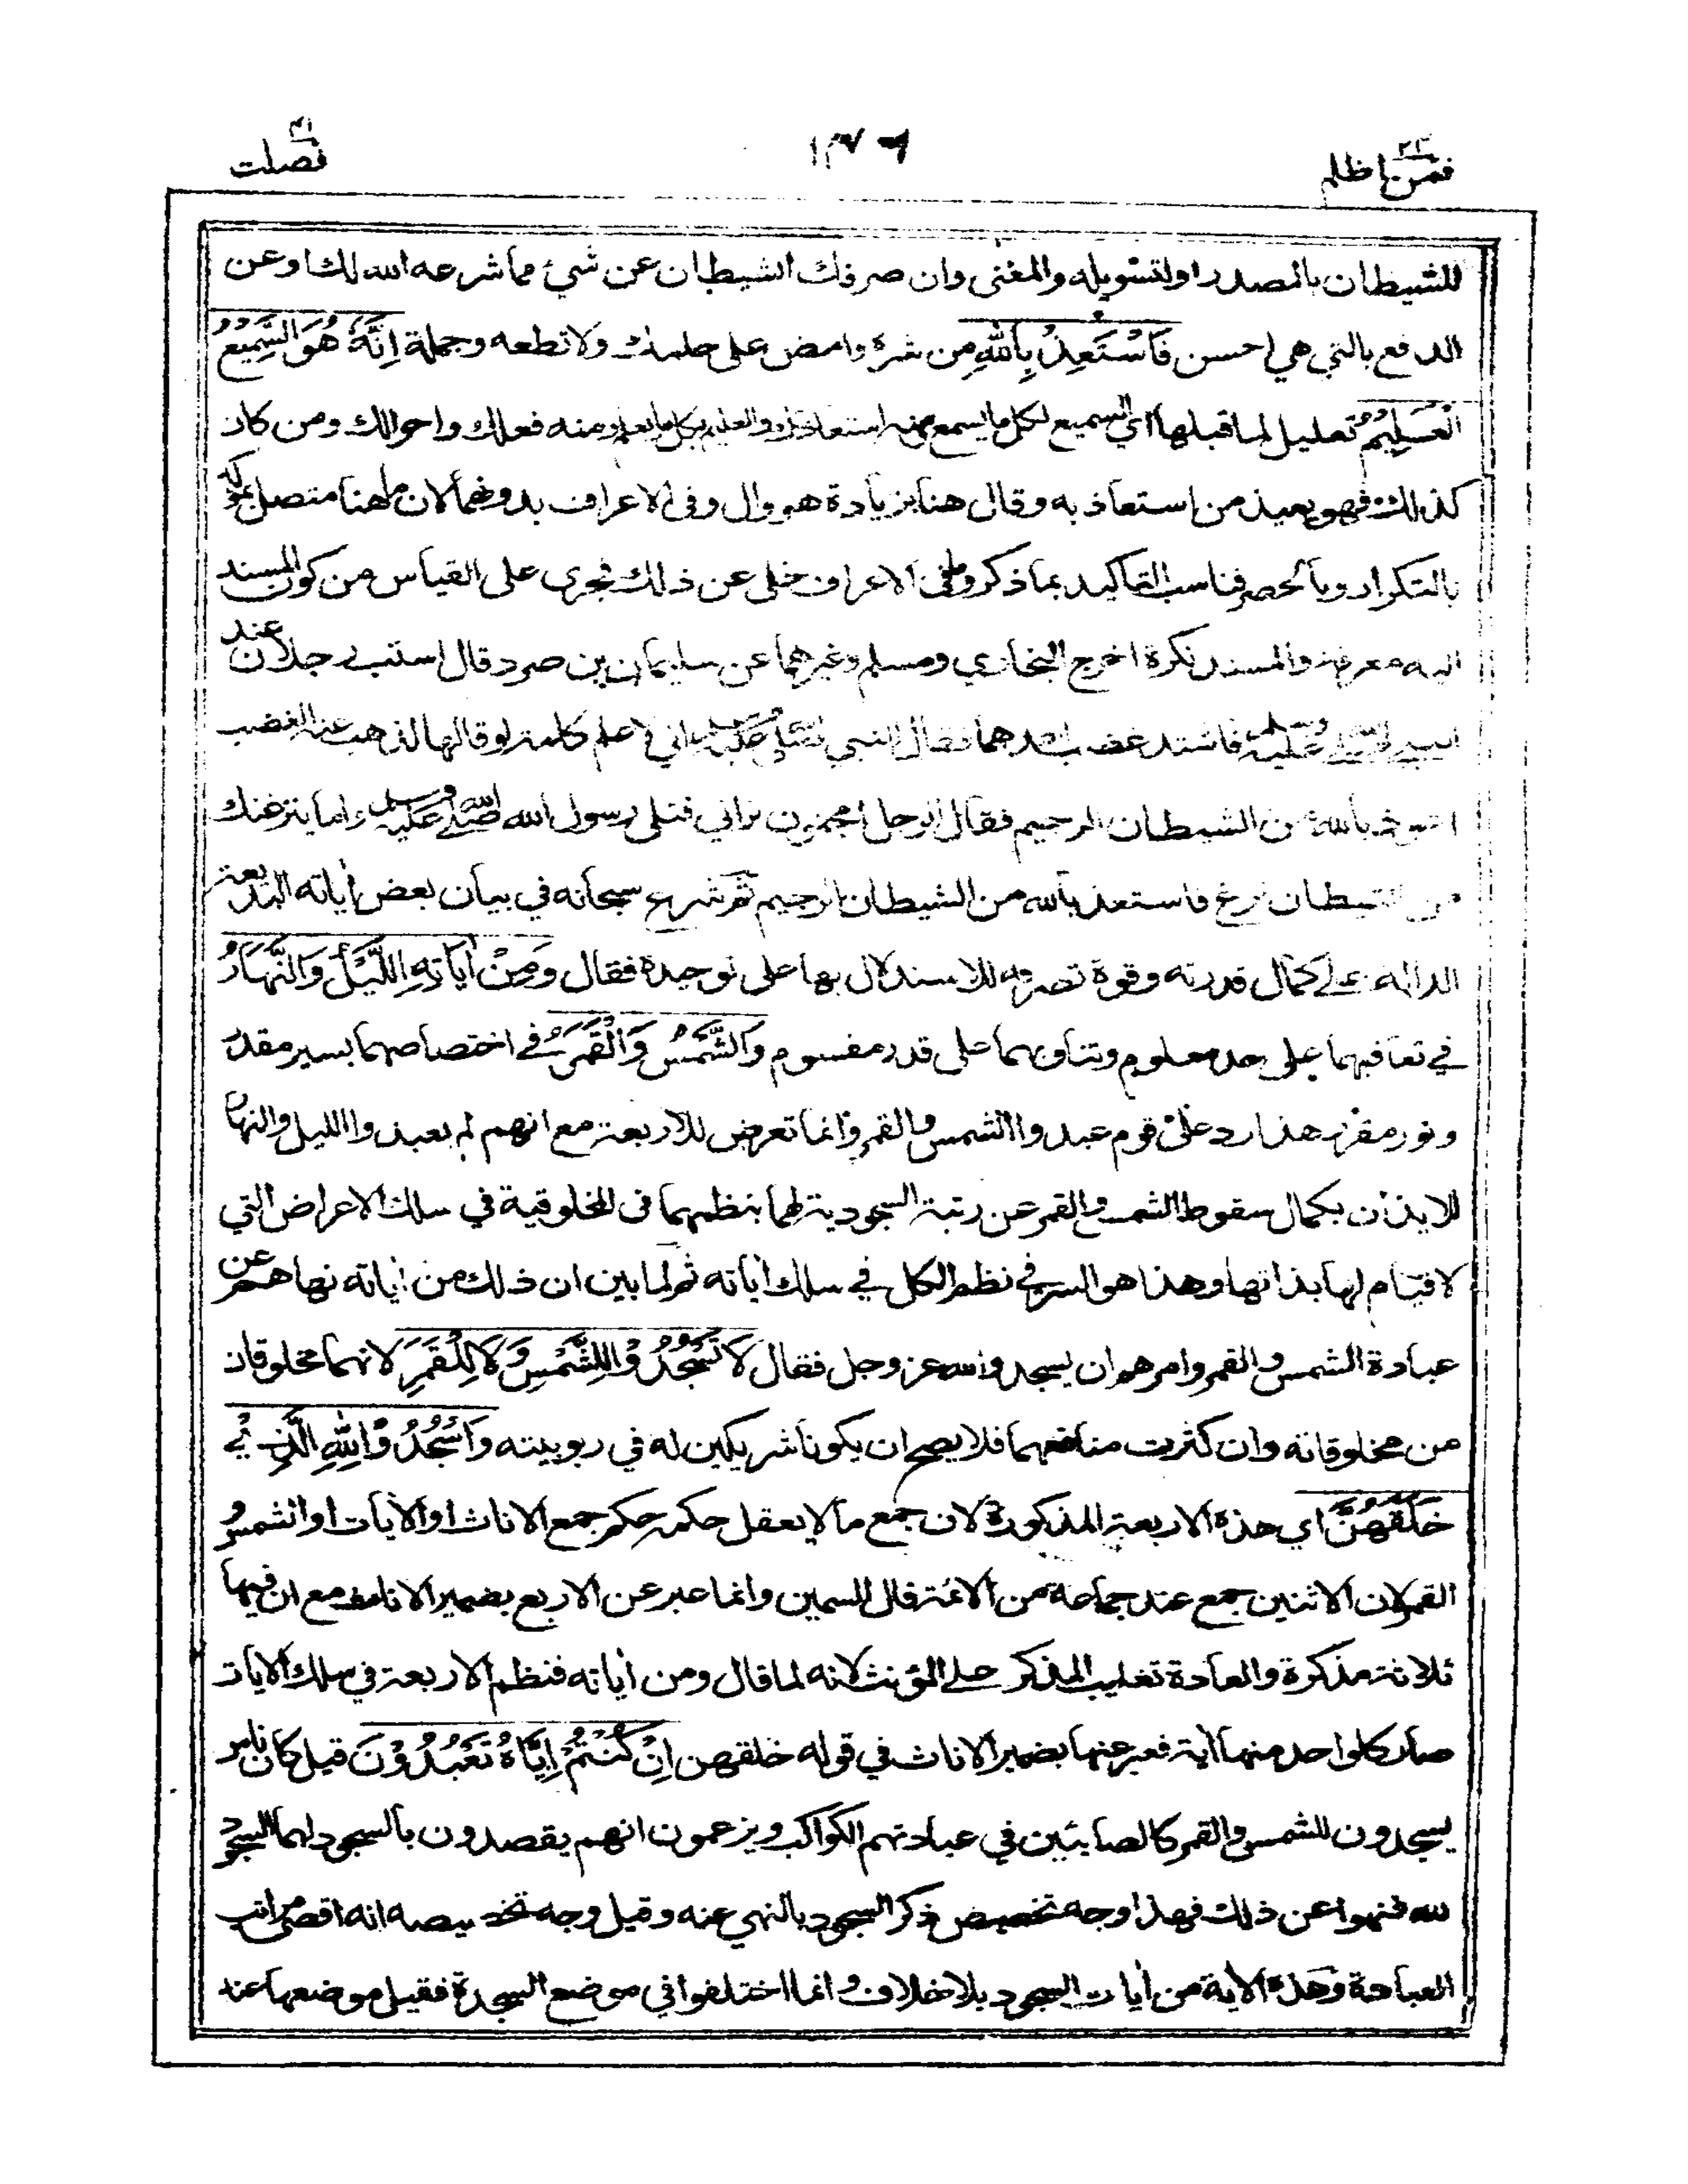 فمن اظلم ٢٤
فصلت ٤١
للشيطان بالمصدر او لتسويله والمعنى وان صرفك الشيطان عن شيء مما شرعه الله لك او عن
الدفع بالتي هي احسن فَاسْتَعِذْ بِاللّٰهِ من شره وامض على حلمك ولا تطعه وجملة اِنَّهٗ هُوَ السَّمِيْعُ
الْعَلِيْمُ تعليل لما قبلها اي السميع لكل ما يسمع ومنه استعاذتك والعليم بكل ما يعلم ومنه فعلك واحوالك ومن كان
كذلك فهو يعيذ من استعاذ به وقال هنا بزيادة هو وال وفى الاعراف بدونهما لان ما هنا متصل بمؤكد
بالتكرار وبالحصر فناسب التاكيد بما ذكر وما فى الاعراف خلى عن ذلك فجرى على القياس من كون المسند
اليه معرفة والمسند نكرة اخرج البخاري ومسلم وغيرهما عن سليمان بن صرد قال استب رجلان عند
النبي صلى الله عليه وسلم فاشتد غضب احدهما فقال النبي صلى الله عليه وسلم اني لاعلم كلمة لو قالها لذهب عنه الغضب
اعوذ بالله من الشيطان الرجيم فقال الرجل امجنون تراني فتلى رسول الله صلى الله عليه وسلم واما ينزغنك
من الشيطان نزغ فاستعذ بالله من الشيطان الرجيم ثم شرع سبحانه في بيان بعض أياته البديعة
الدالة على كمال قدرته وقوة تصرفه للاستدلال بها على توحيده فقال وَمِنْ اٰيَاتِهِ اللَّيْلُ وَالنَّهَارُ
في تعاقبهما على حد معلوم وتناوبهما على قدر مقسوم وَالشَّمْسُ وَالْقَمَرُ في اختصاصهما بسير مقدر
ونور مقرر هذا رد على قوم عبدوا الشمس والقمر وانما تعرض للاربعة مع انهم لم يعبدوا الليل والنهار
للايذان بكمال سقوط الشمس والقمر عن رتبة السجودية لهما بنظمهما فى المخلوقية في سلك الاعراض التي
لا قيام لها بذاتها وهذا هو السر في نظم الكل في سلك أياته ثم لما بين ان ذلك من أياته نهاهم عن
عبادة الشمس والقمر وامرهم ان يسجدوا لله عز وجل فقال لَا تَسْجُدُوْا لِلشَّمْسِ وَلَا لِلْقَمَرِ لانهما مخلوقان
من مخلوقاته وان كثرت منافعهما فلا يصح ان يكونا شريكين له في ربوبيته وَاسْجُدُوْا لِلّٰهِ الَّذِيْ
خَلَقَهُنَّ اي هذه الاربعة المذكورة لان جمع ما لا يعقل حكمه حكم جمع الاناث او الأيات او الشمس و
القمر لان الاثنين جمع عند جماعة من الائمة قال السمين وانما عبر عن الاربع بضمير الاناث مع ان فيها
ثلاثة مذكرة والعادة تغليب المذكر على المؤنث لانه لما قال ومن أياته فنظم الاربعة في سلك الايات
صار كل واحد منها أية فعبر عنها بضمير الاناث في قوله خلقهن اِنْ كُنْتُمْ اِيَّاهُ تَعْبُدُوْنَ قيل كان ناس
يسجدون للشمس والقمر كالصابئين في عبادتهم الكواكب ويزعمون انهم يقصدون بالسجود لهما السجود
لله فنهوا عن ذلك فهذا وجه تخصيص ذكر السجود بالنهي عنه وقيل وجه تخصيصه انه اقصى مراتب
العبادة وهذه الأية من أيات السجود بلا خلاف وانما اختلفوا في موضع السجدة فقيل موضعها عند